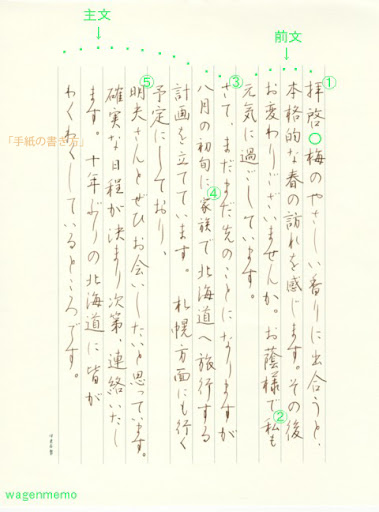 主文
前文
①
拝啓○梅のやさしい香りに出合うと、
本格的な春の訪れを感じます。その後
お変わりございませんか。お蔭様で私も
②
元気に過ごしています。
③
さて、まだまだ先のことになりますが
④
八月の初旬に家族で北海道へ旅行する
計画を立てています。札幌方面にも行く
予定にしており、
⑤
明夫さんとぜひお会いしたいと思っています。
確実な日程が決まり次第、連絡いたし
ます。十年ぶりの北海道に皆が
わくわくしているところです。
「手紙の書き方」
wagenmemo